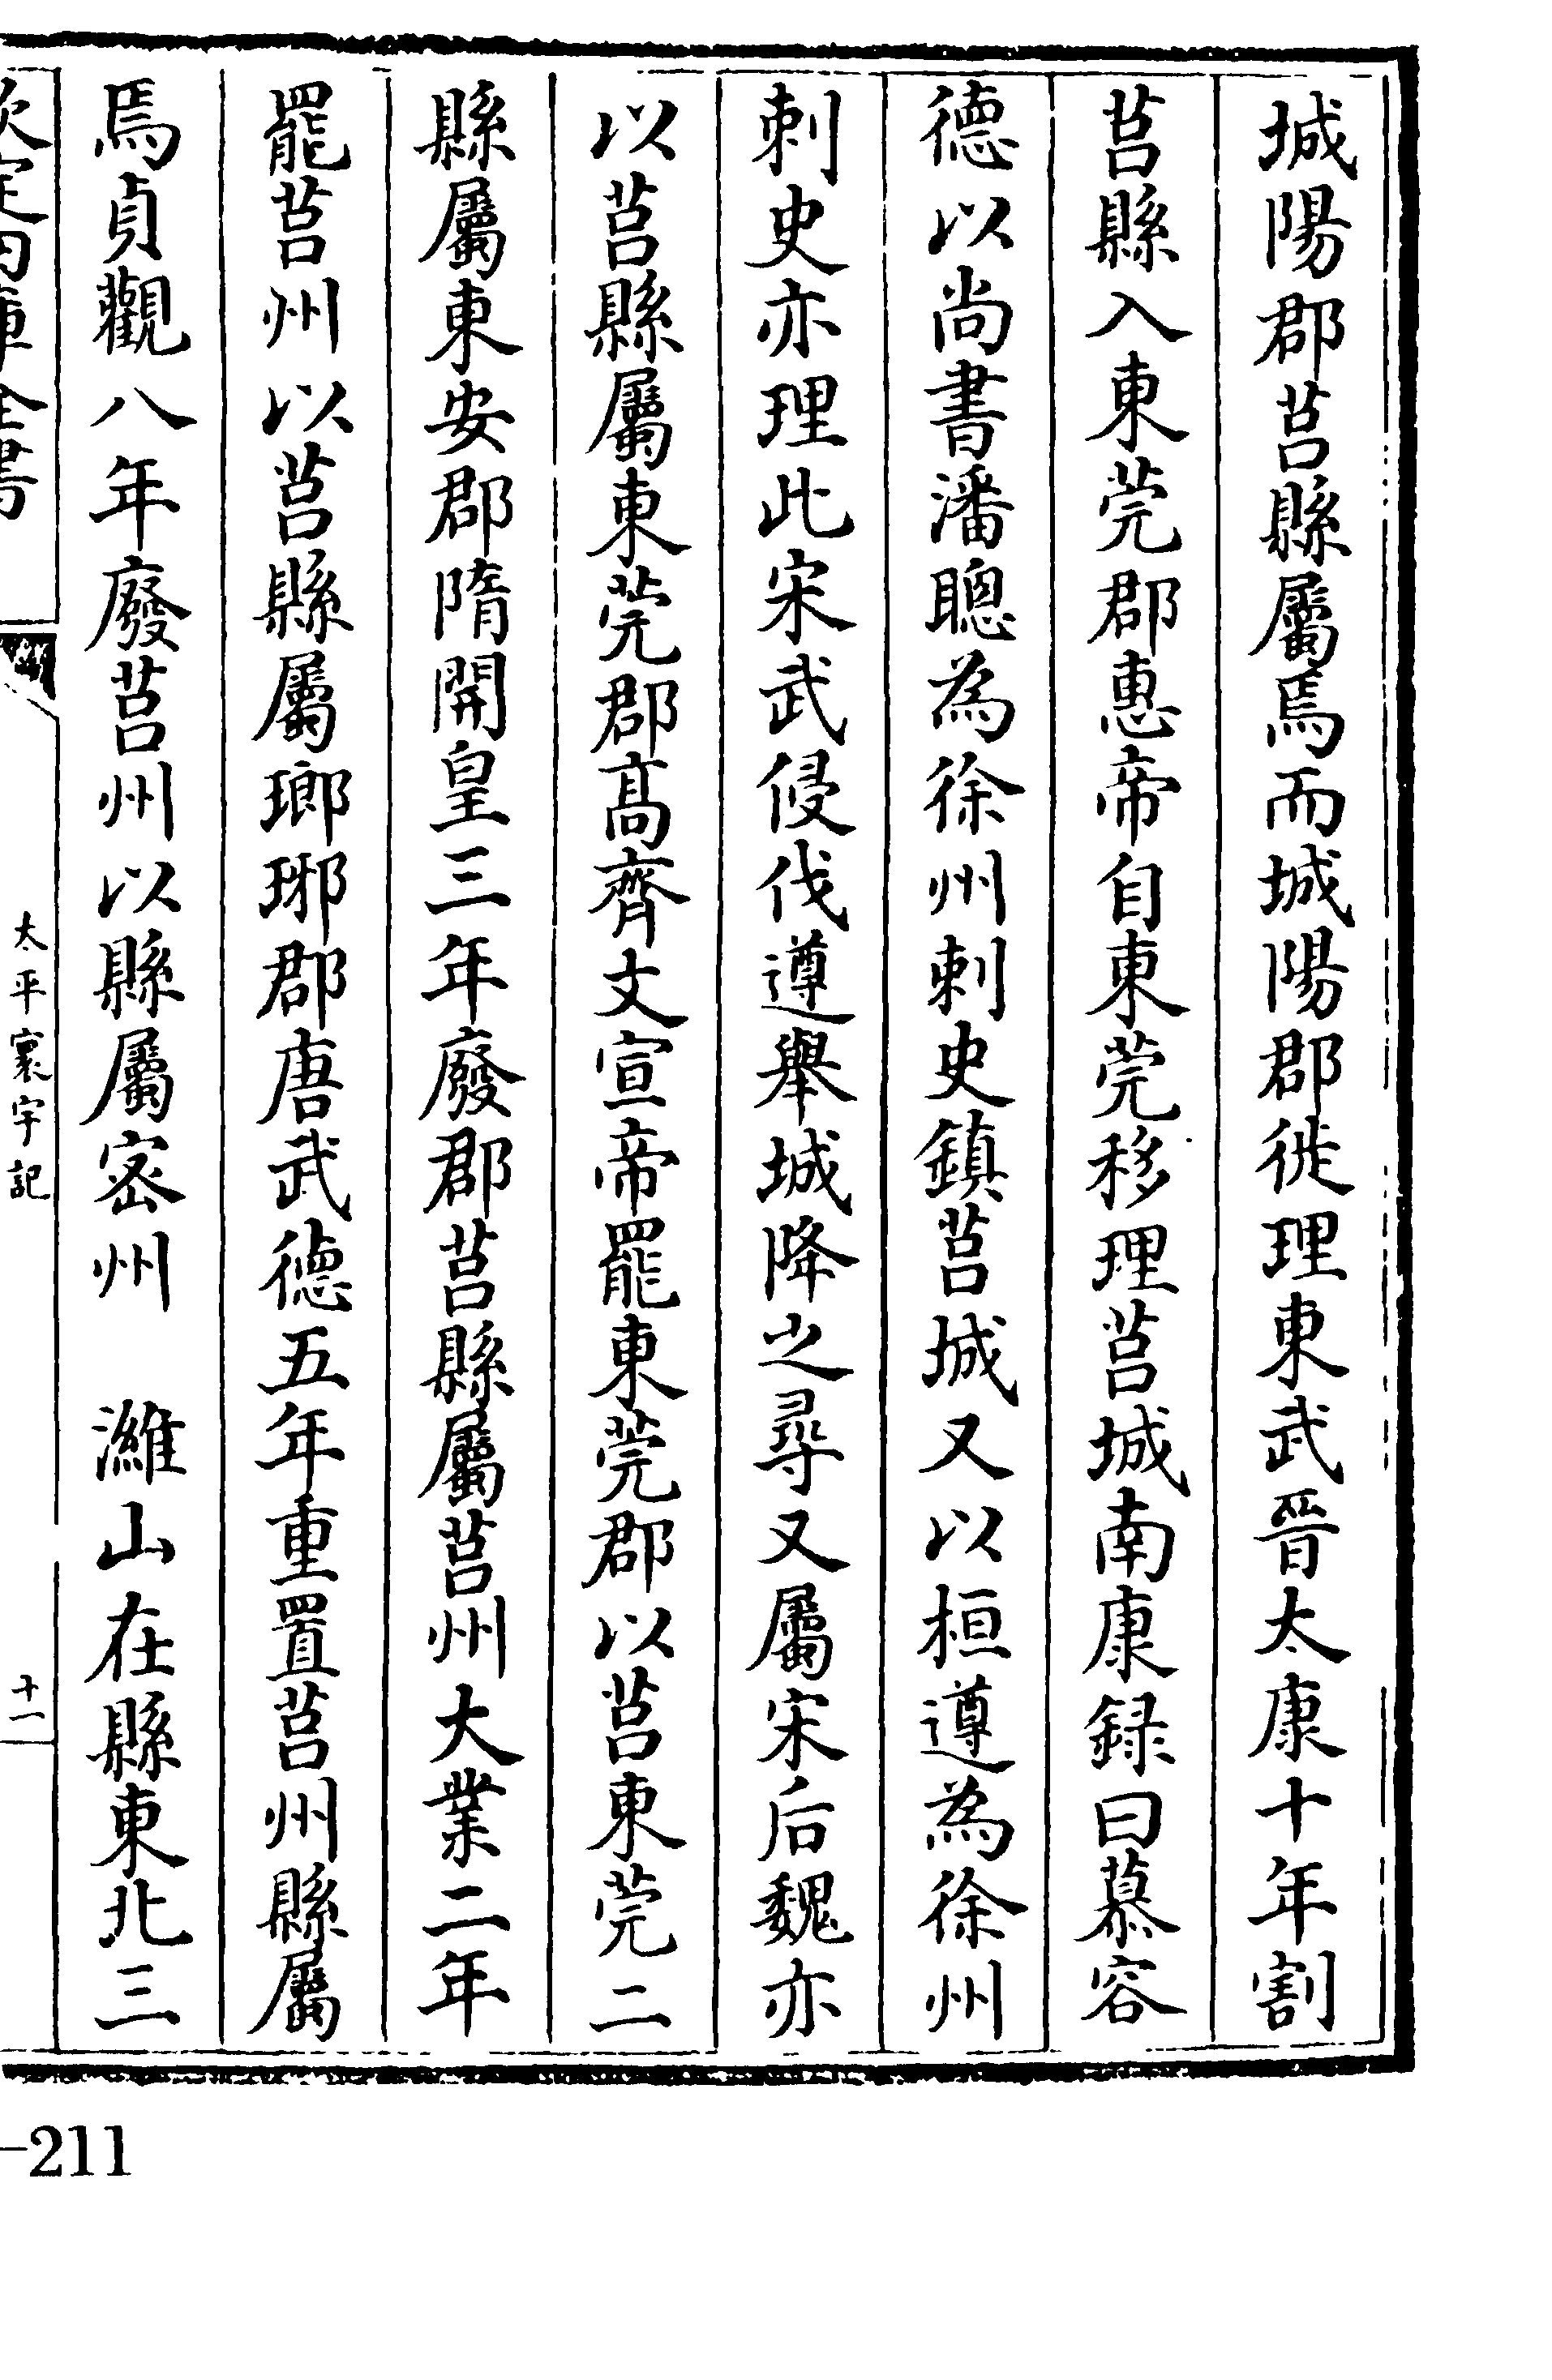 城陽郡莒縣屬焉而城陽郡徙理東武晉太康十年割
莒縣入東莞郡惠帝自東莞移理莒城南康録曰慕容
德以尚書潘聰為徐州刺史鎮莒城又以桓遵為徐州
刺史亦理此宋武侵伐遵舉城降之尋又屬宋后魏亦
以莒縣屬東莞郡髙齊文宣帝罷東莞郡以莒東莞二
縣屬東安郡隋開皇三年廢郡莒縣屬莒州大業二年
罷莒州以莒縣屬瑯琊郡唐武德五年重置莒州縣屬
焉貞觀八年廢莒州以縣屬密州　濰山在縣東北三
欽定四庫全書
太平寰宇記
十一
-211